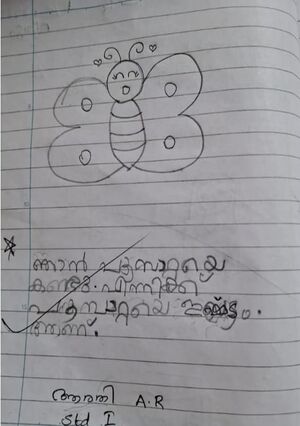 ഞാൻ പൂമ്പാറ്റയെ
കണ്ടു. എനിക്ക്
പൂമ്പാറ്റയെ ഇഷ്ട്ടം.
ആണ്.
ആരതി A.R
Std I